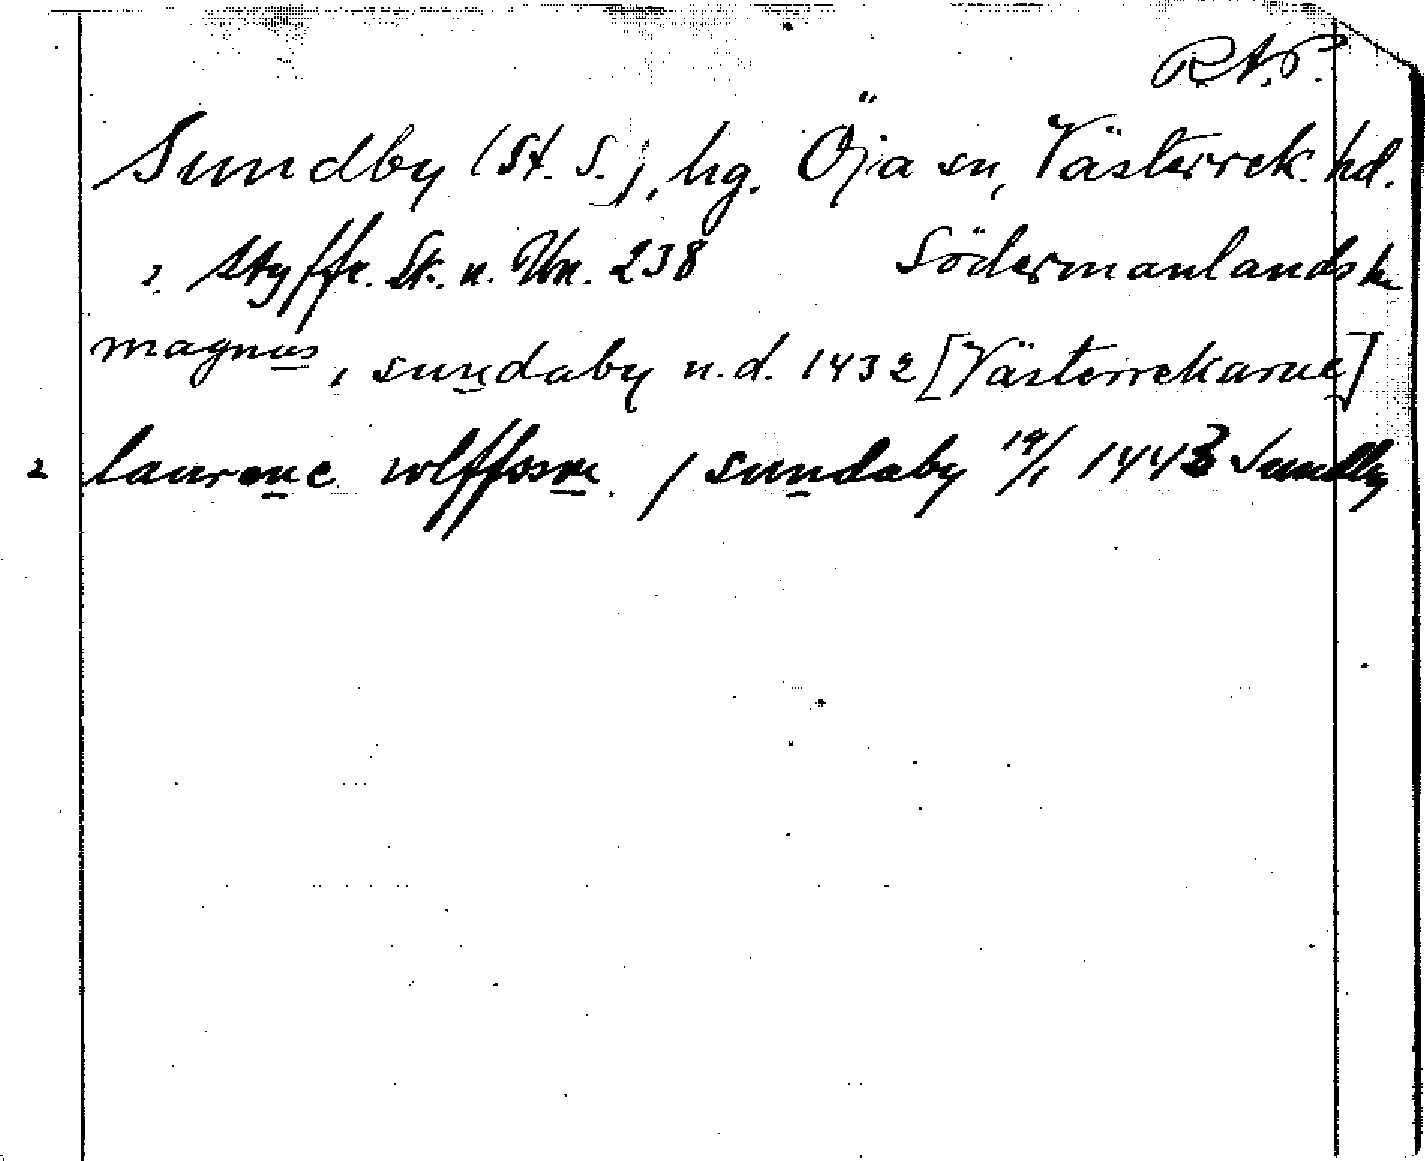 R.A.P.
Sundby (St. S.), hg. Öja sn, Västerrek. hd.
2. Styffe. Sk. u. Un. 238 Södermanlands
magnus, sundaby u.d. 1432 [Västerrekarne]
2 laurenc wlffson / sundaby 19/1 1443 Sundby